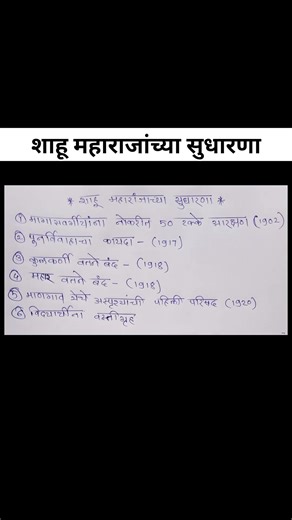 शाहू महाराजांच्या सुधारणा
* शाहू महाराजांच्या सुधारणा *
① मागासवर्गीयांना नोकरीत 50 टक्के आरक्षण (1902)
② पुनर्विवाहाचा कायदा - (1917)
③ कुलकर्णी वतने बंद - (1918)
④ महार वतने बंद - (1918)
⑤ माणगाव येथे अस्पृश्यांची पहिली परिषद (1920)
⑥ विद्यार्थीना वस्तीगृह